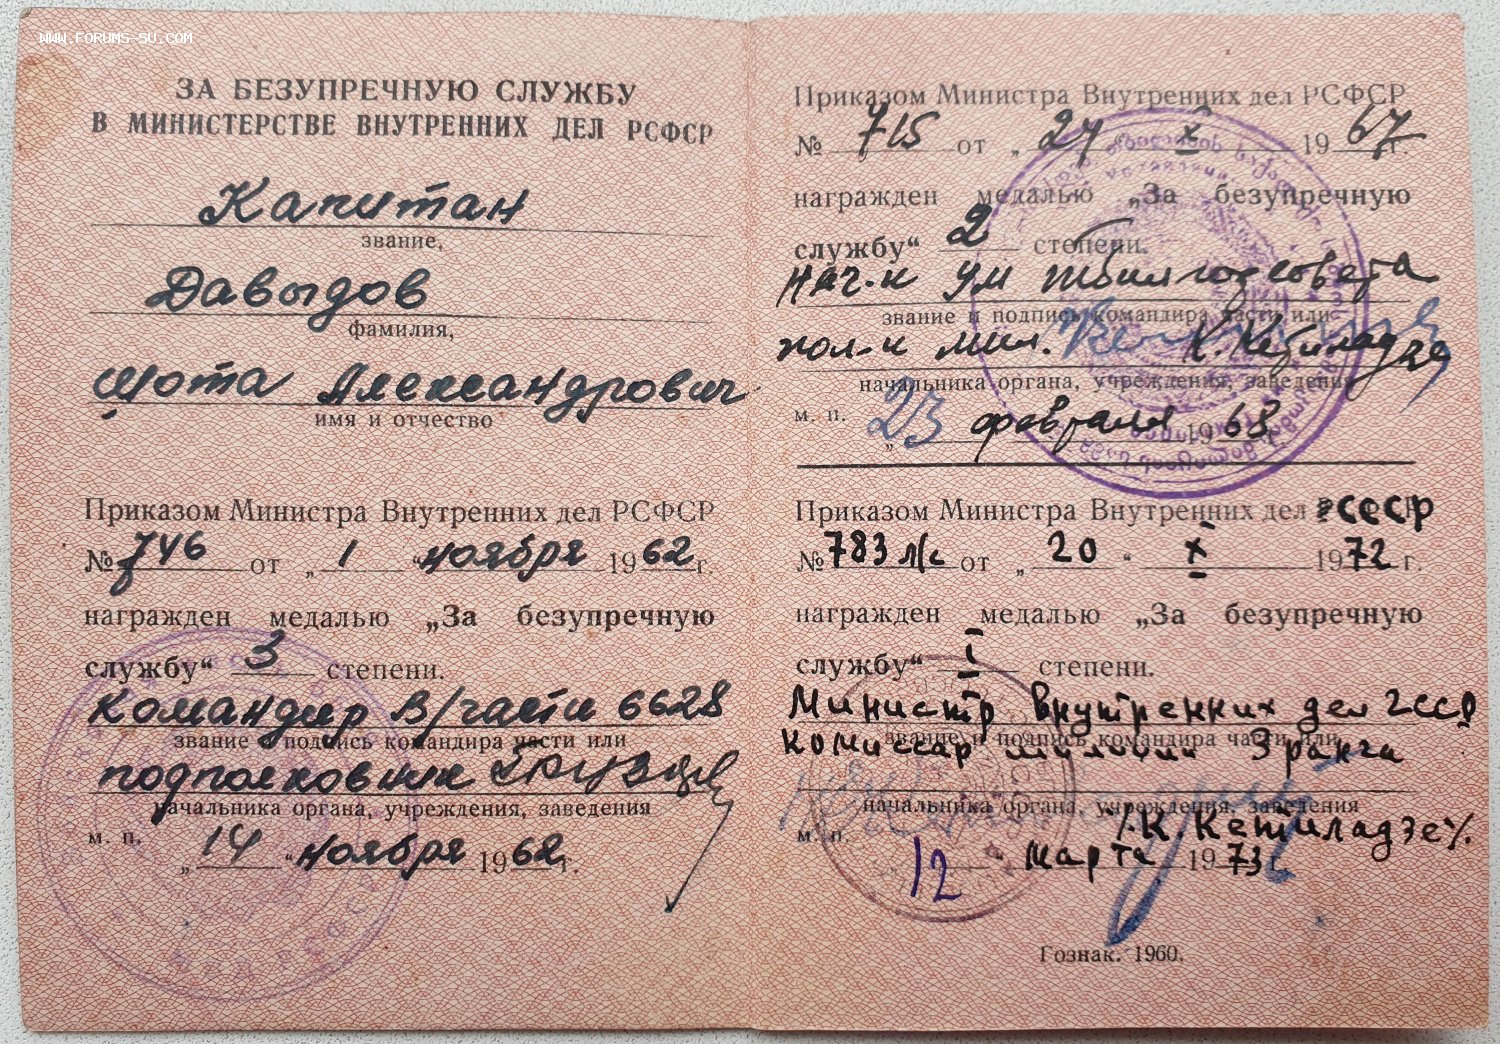 WWW.FORUMS-SU.COM
ЗА БЕЗУПРЕЧНУЮ СЛУЖБУ
В МИНИСТЕРСТВЕ ВНУТРЕННИХ ДЕЛ РСФСР
Капитан
звание,
Давыдов
фамилия,
Шота Александрович
имя и отчество
Приказом Министра Внутренних дел РСФСР
№ 746 от „ 1 “ ноября 1962 г.
награжден медалью „За безупречную
службу“ 3 степени.
Командир в/части 6628
звание и подпись командира части или
подполковник
начальника органа, учреждения, заведения
м. п.
„ 14 “ ноября 1962 г.
Приказом Министра Внутренних дел РСФСР
№ 715 от „ 24 “ X 1967 г.
награжден медалью „За безупречную
службу“ 2 степени.
Нач-к УМ Тбилгорсовета
звание и подпись командира части или
пол-к мил.
начальника органа, учреждения, заведения
м. п.
„ 23 февраля 1968 г.
Приказом Министра Внутренних дел СССР
№ 783 л/с от „ 20 “ X 1972 г.
награжден медалью „За безупречную
службу“ I степени.
Министр внутренних дел ГССР
звание и подпись командира части или
комиссар милиции 3 ранга
начальника органа, учреждения, заведения
/К. Кетиладзе/
м. п.
12 “ марта 1973 г.
Гознак. 1960.